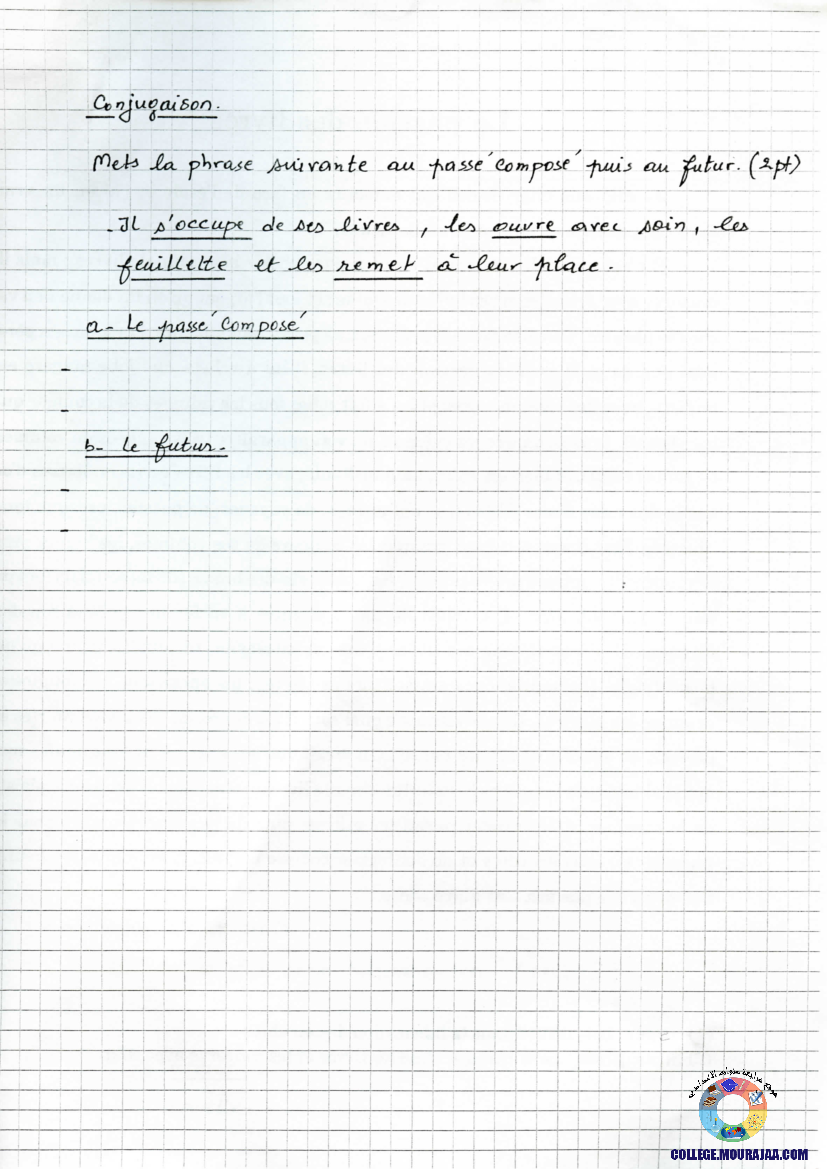 Conjugaison.
Mets la phrase suivante au passé composé puis au futur. (2pt)
- Il s'occupe de ses livres, les ouvre avec soin, les
feuillette et les remet à leur place.
a- Le passé composé
-
-
b- Le futur.
-
-
COLLEGE.MOURAJAA.COM